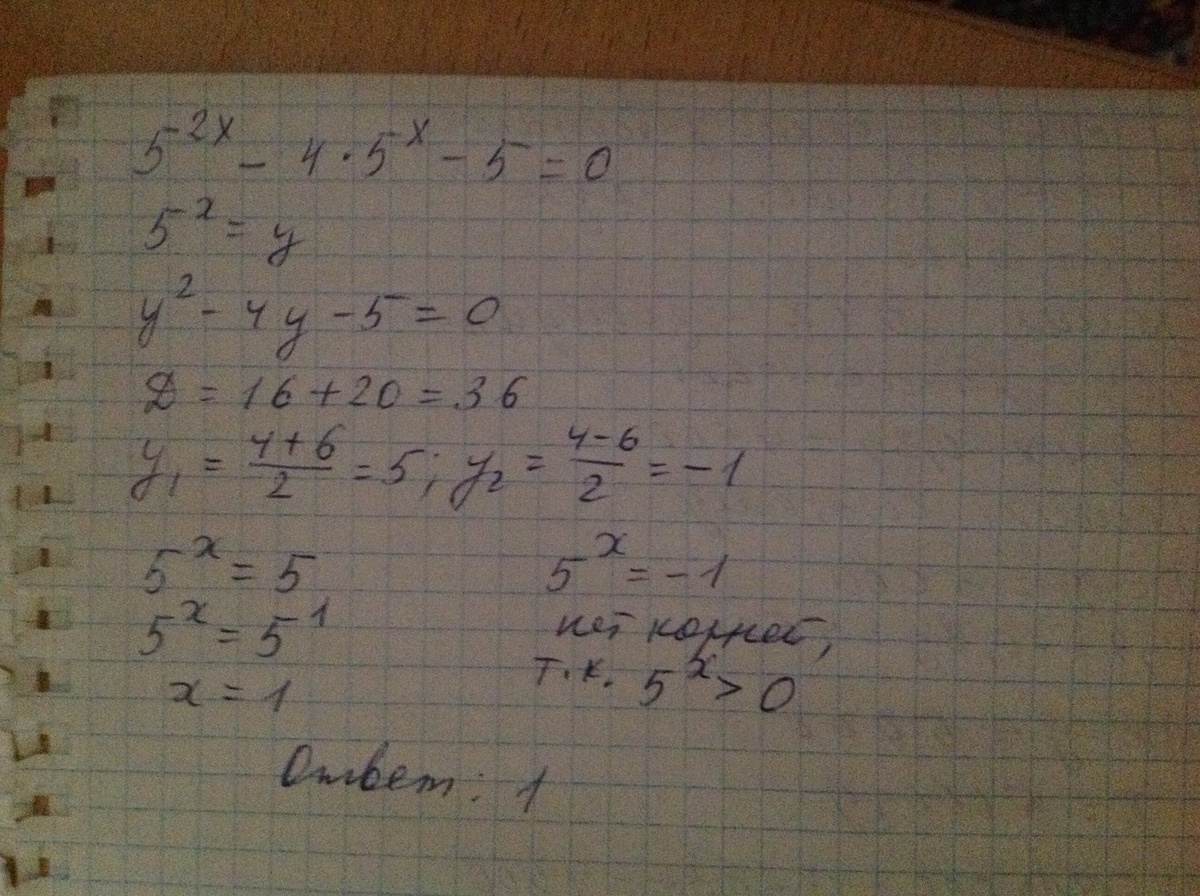 5^{2x} - 4 · 5^x - 5 = 0
5^x = y
y² - 4y - 5 = 0
D = 16 + 20 = 36
y₁ = \frac{4+6}{2} = 5; y₂ = \frac{4-6}{2} = -1
5^x = 5 5^x = -1
5^x = 5^1 нет корней,
x = 1 т.к. 5^x > 0
Ответ: 1